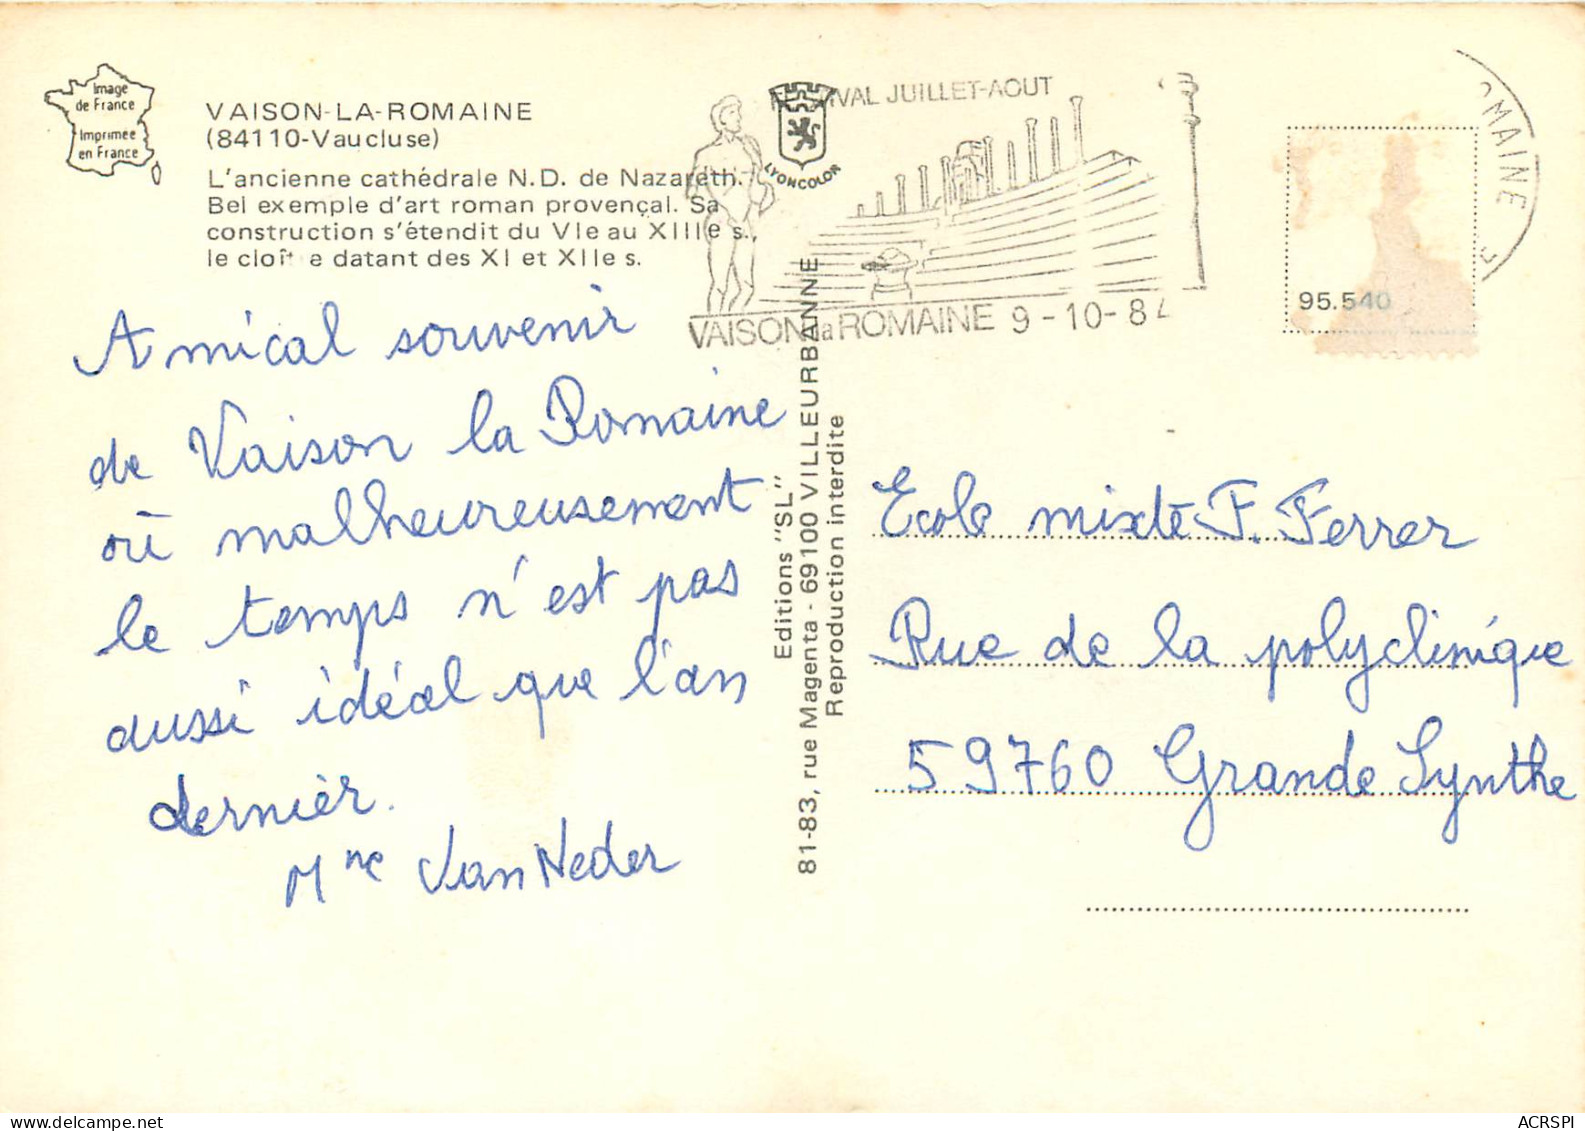 Image
de France
Imprimée
en France
VAISON-LA-ROMAINE
(84110-Vaucluse)
L'ancienne cathédrale N.D. de Nazareth.
Bel exemple d'art roman provençal. Sa
construction s'étendit du VIe au XIIIe s.,
le cloît e datant des XI et XIIe s.
JUILLET-AOUT
LYONCOLOR
VAISON la ROMAINE 9-10-84
OMAINE
95.540
Amical souvenir
de Vaison la Romaine
où malheureusement
le temps n'est pas
aussi idéal que l'an
dernier.
Mme VanNeder
Editions "SL"
81-83, rue Magenta - 69100 VILLEURBANNE
Reproduction interdite
Ecole mixte F. Ferrer
Rue de la polyclinique
59760 Grande Synthe
ACRSPI